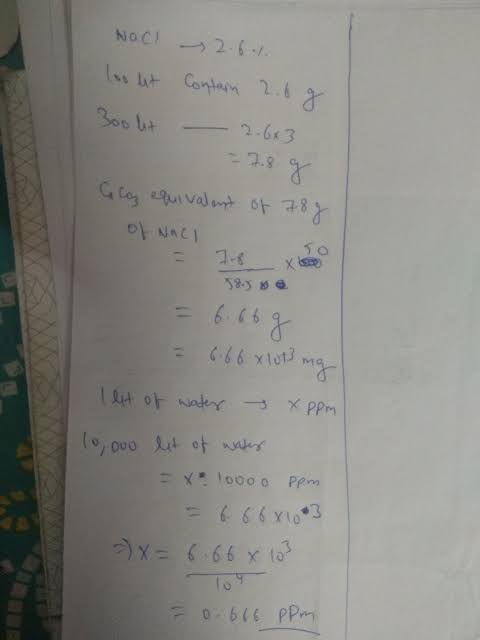 NaCl → 2.6 %
100 lit Contain 2.6 g
300 lit — 2.6x3
= 7.8 g
CaCO3 equivalent of 7.8 g
of NaCl
= 7.8 / 58.5 x 50
= 6.66 g
= 6.66 x 10^3 mg
1 lit of water → x ppm
10,000 lit of water
= x · 10000 ppm
= 6.66 x 10^3
⇒ x = 6.66 x 10^3 / 10^4
= 0.666 ppm